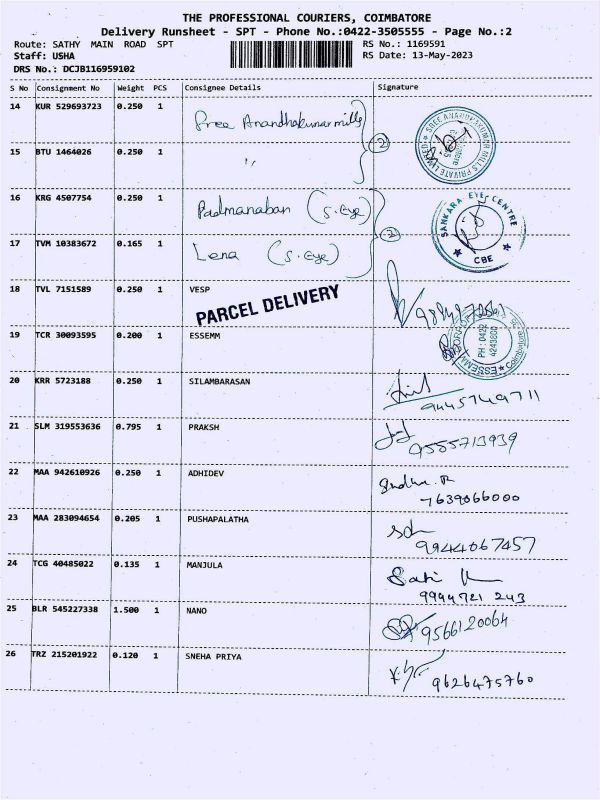 THE PROFESSIONAL COURIERS, COIMBATORE
Delivery Runsheet - SPT - Phone No.:0422-3505555 - Page No.:2
Route: SATHY MAIN ROAD SPT RS No.: 1169591
Staff: USHA RS Date: 13-May-2023
DRS No.: DCJB116959102
S No Consignment No Weight PCS Consignee Details Signature
14 KUR 529693723 0.250 1 Sree Anandhakumar mills
2 SREE ANANDHAKUMAR MILLS PRIVATE LIMITED
15 BTU 1464026 0.250 1 "
16 KRG 4507754 0.250 1 Padmanaban (S. Eye)
2 SANKARA EYE CENTRE CBE
17 TVM 10383672 0.165 1 Lena (S. Eye)
18 TVL 7151589 0.250 1 VESP
PARCEL DELIVERY
19 TCR 30093595 0.200 1 ESSEMM
PH : 0422 4243800 ESSEMM Coimbatore
20 KRR 5723188 0.250 1 SILAMBARASAN
9445749711
21 SLM 319553636 0.795 1 PRAKSH
9555713939
22 MAA 942610926 0.250 1 ADHIDEV
7639066000
23 MAA 283094654 0.205 1 PUSHAPALATHA
9944067457
24 TCG 40485022 0.135 1 MANJULA
9994721 243
25 BLR 545227338 1.500 1 NANO
9566120064
26 TRZ 215201922 0.120 1 SNEHA PRIYA
9626475760